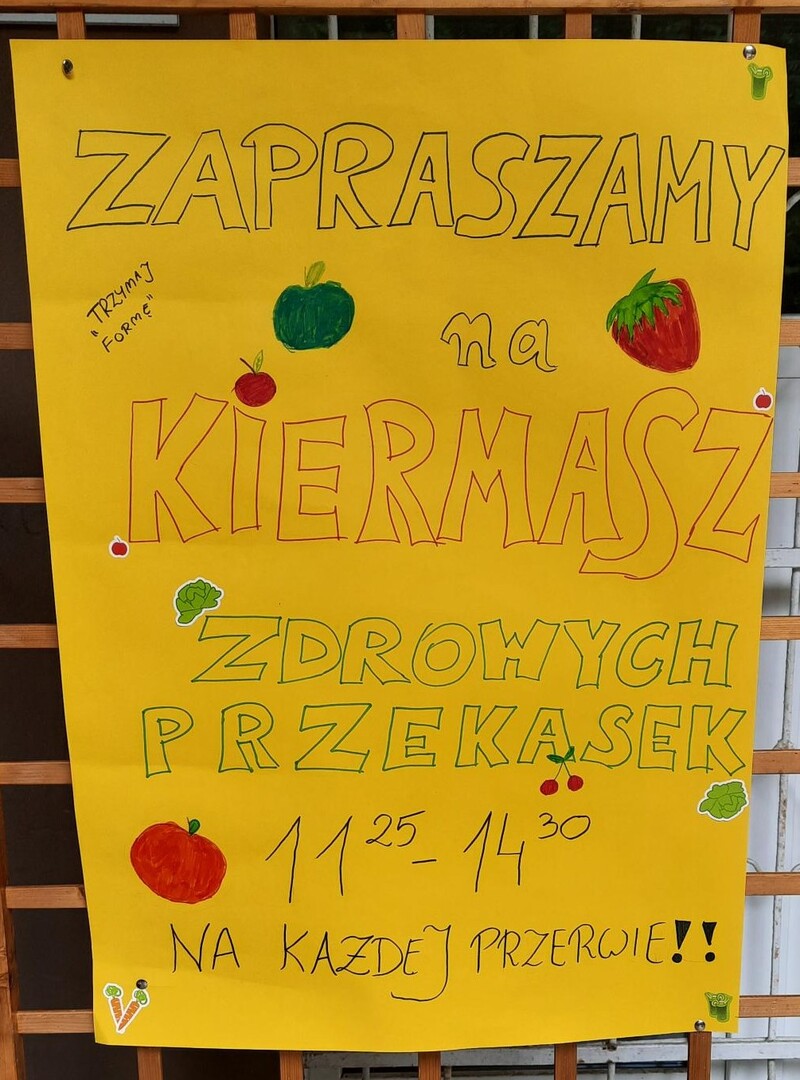 ZAPRASZAMY
"TRZYMAJ
FORMĘ"
na
KIERMASZ
ZDROWYCH
PRZEKĄSEK
11 25 - 14 30
NA KAZDEJ PRZERWIE!!